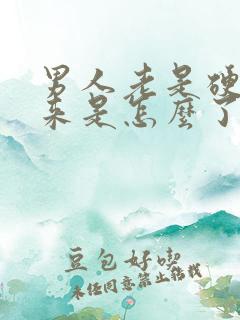 男人老是硬
来是怎麼了
豆包好喫
未经同意禁止转载